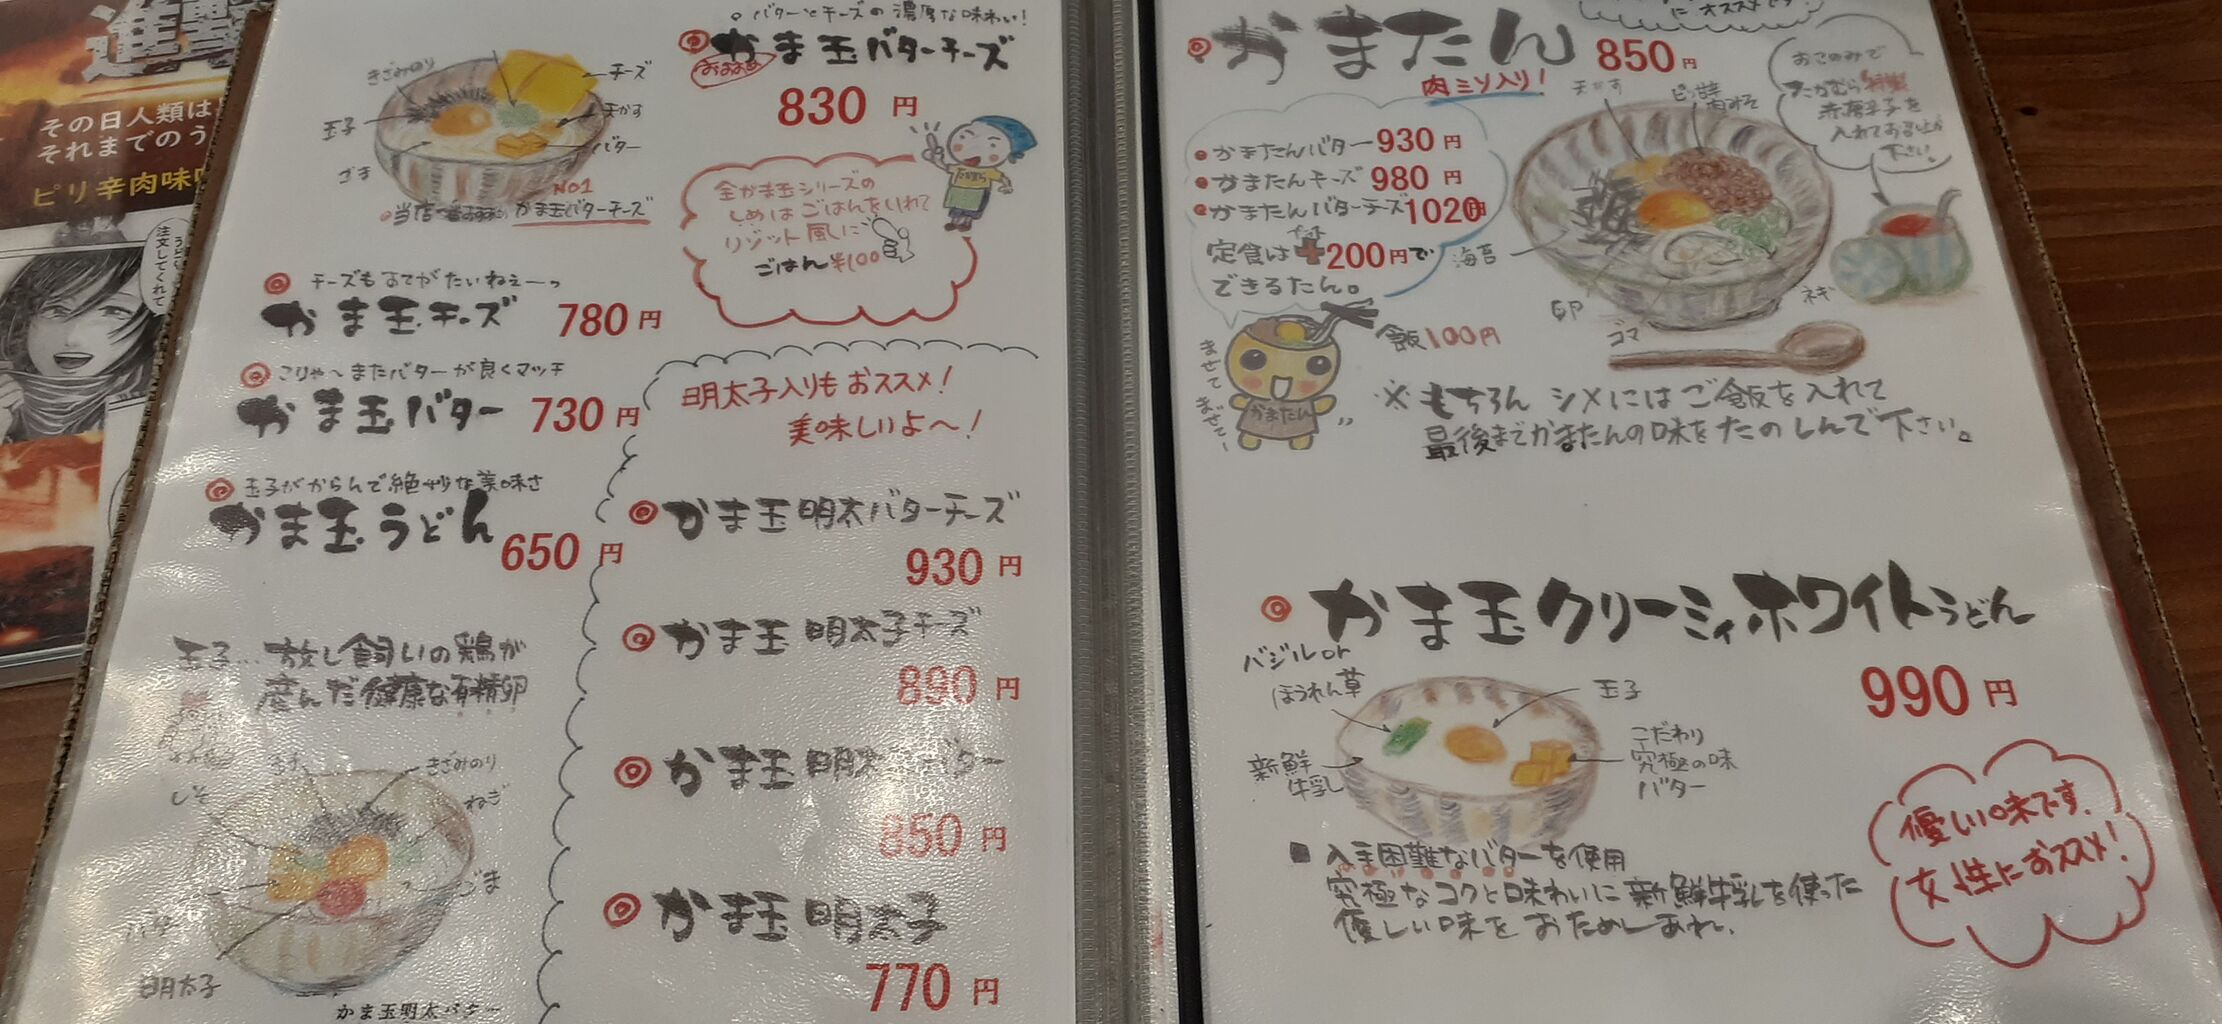 その日人類は
それまでのう
ピリ辛肉味
注文してくれて
バターとチーズの濃厚な味わい!
かま玉バターチーズ
おすすめ
830円
きざみのり
チーズ
玉子
天かす
バター
ごま
NO1
当店一番おすすめかま玉バターチーズ
全かま玉シリーズの
しめはごはんをいれて
リゾット風に
ごはん¥100
チーズもすてがたいねぇーっ
かま玉チーズ 780円
こりゃ〜またバターが良くマッチ
かま玉バター 730円
玉子がからんで絶妙な美味さ
かま玉うどん 650円
玉子…放し飼いの鶏が
産んだ健康な有精卵
きざみのり
しそ
ねぎ
ごま
バター
明太子
かま玉明太バター
明太子入りもおススメ!
美味しいよ〜!
かま玉明太バターチーズ
930円
かま玉明太子チーズ
890円
かま玉明太子バター
850円
かま玉明太子
770円
にオススメです
かまたん 850円
肉ミソ入り!
かまたんバター 930円
かまたんチーズ 980円
かまたんバターチーズ 1020円
定食は+200円で
できるたん。
飯100円
まぜて
まぜて〜
かまたん
天かす
ピリ辛
肉みそ
海苔
卵
ゴマ
ネギ
おこのみで
たかむら特製
赤唐辛子を
入れてお召上がり
下さい。
※もちろんシメにはご飯を入れて
最後までかまたんの味をたのしんで下さい。
かま玉クリーミィホワイトうどん
990円
バジルor
ほうれん草
玉子
新鮮
牛乳
こだわり
究極の味
バター
■入手困難なバターを使用
究極なコクと味わいに新鮮牛乳を使った
優しい味をおためしあれ。
優しい味です。
女性におススメ!